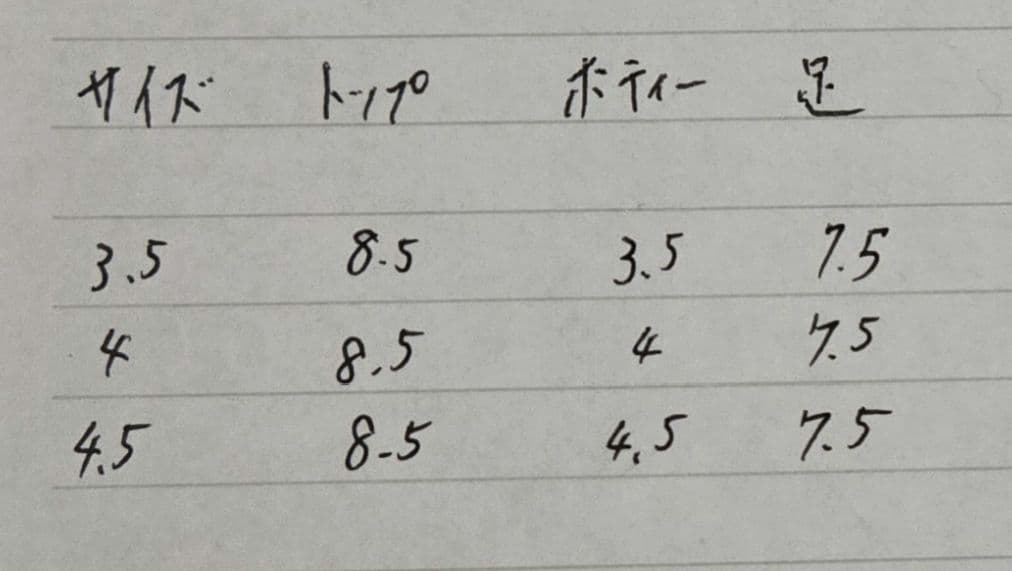 サイズ トップ ボティー 足
3.5 8.5 3.5 7.5
4 8.5 4 7.5
4.5 8-5 4.5 7.5